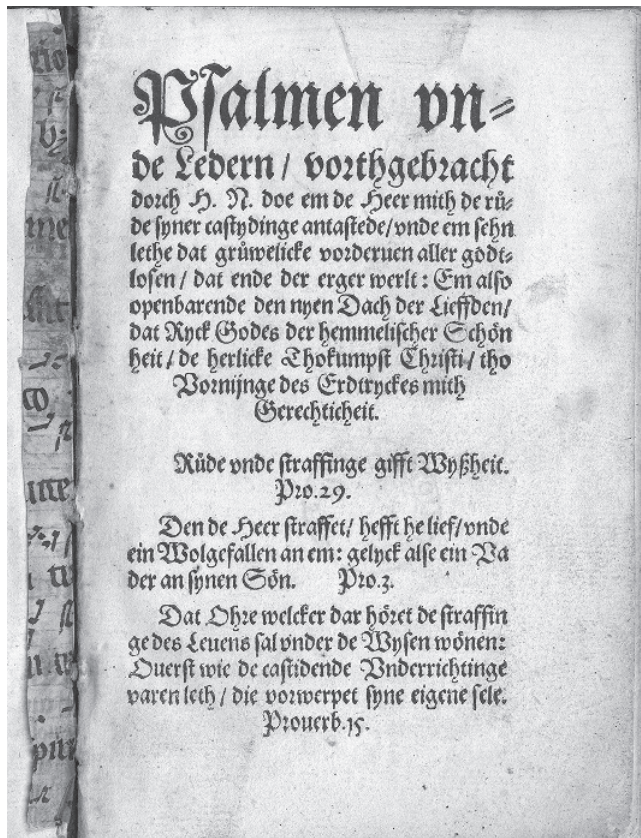 Psalmen vn⸗
de Ledern / vorthgebracht
dorch H. N. doe em de Heer mith de rů⸗
de syner castydinge antastede/vnde em sehn
lethe dat grůwelicke vorderuen aller godt⸗
losen / dat ende der erger werlt : Em also
openbarende den nyen Dach der Lieffden/
dat Ryck Godes der hemmelischer Schön
heit / de herlicke Thokumpst Christi / tho
Vornijnge des Erdtryckes mith
Gerechticheit.
Růde vnde straffinge gifft Wyßheit.
Pro.29.
Den de Heer straffet/ hefft he lief/vnde
ein Wolgefallen an em: gelyck alse ein Va
der an synen Sön. Pro.3.
Dat Ohre welcker dar höret de straffin
ge des Leuens sal vnder de Wysen wönen:
Ouerst wie de castidende Vnderrichtinge
varen leth / die vorwerpet syne eigene sele.
Prouerb.15.